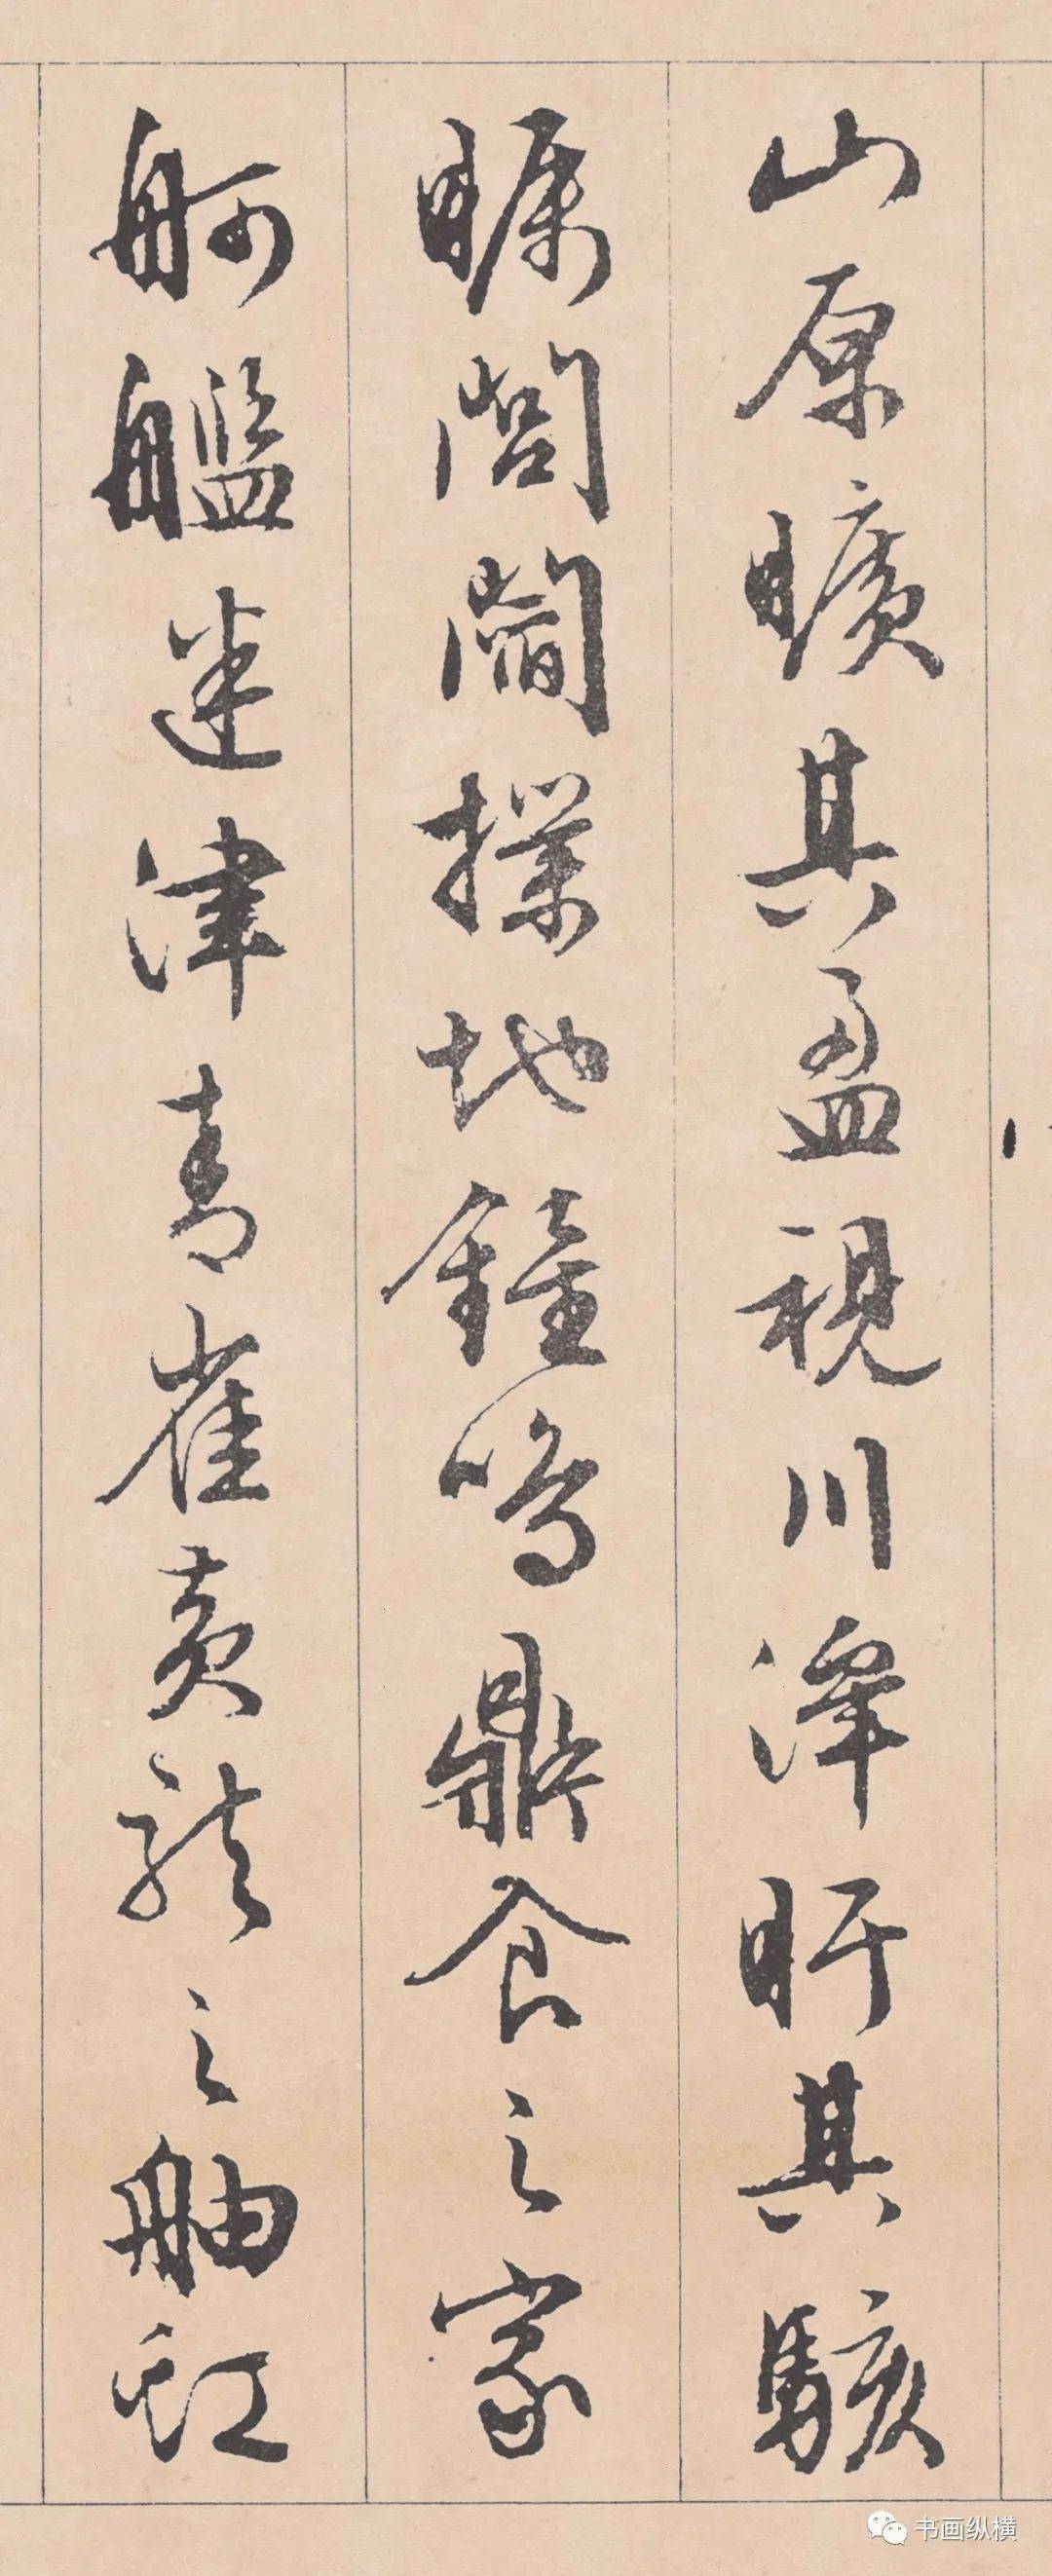 山原曠其盈視川澤盱其駭
矚閭閻撲地鐘鳴鼎食之家
舸艦迷津青雀黃龍之舳虹
书画纵横